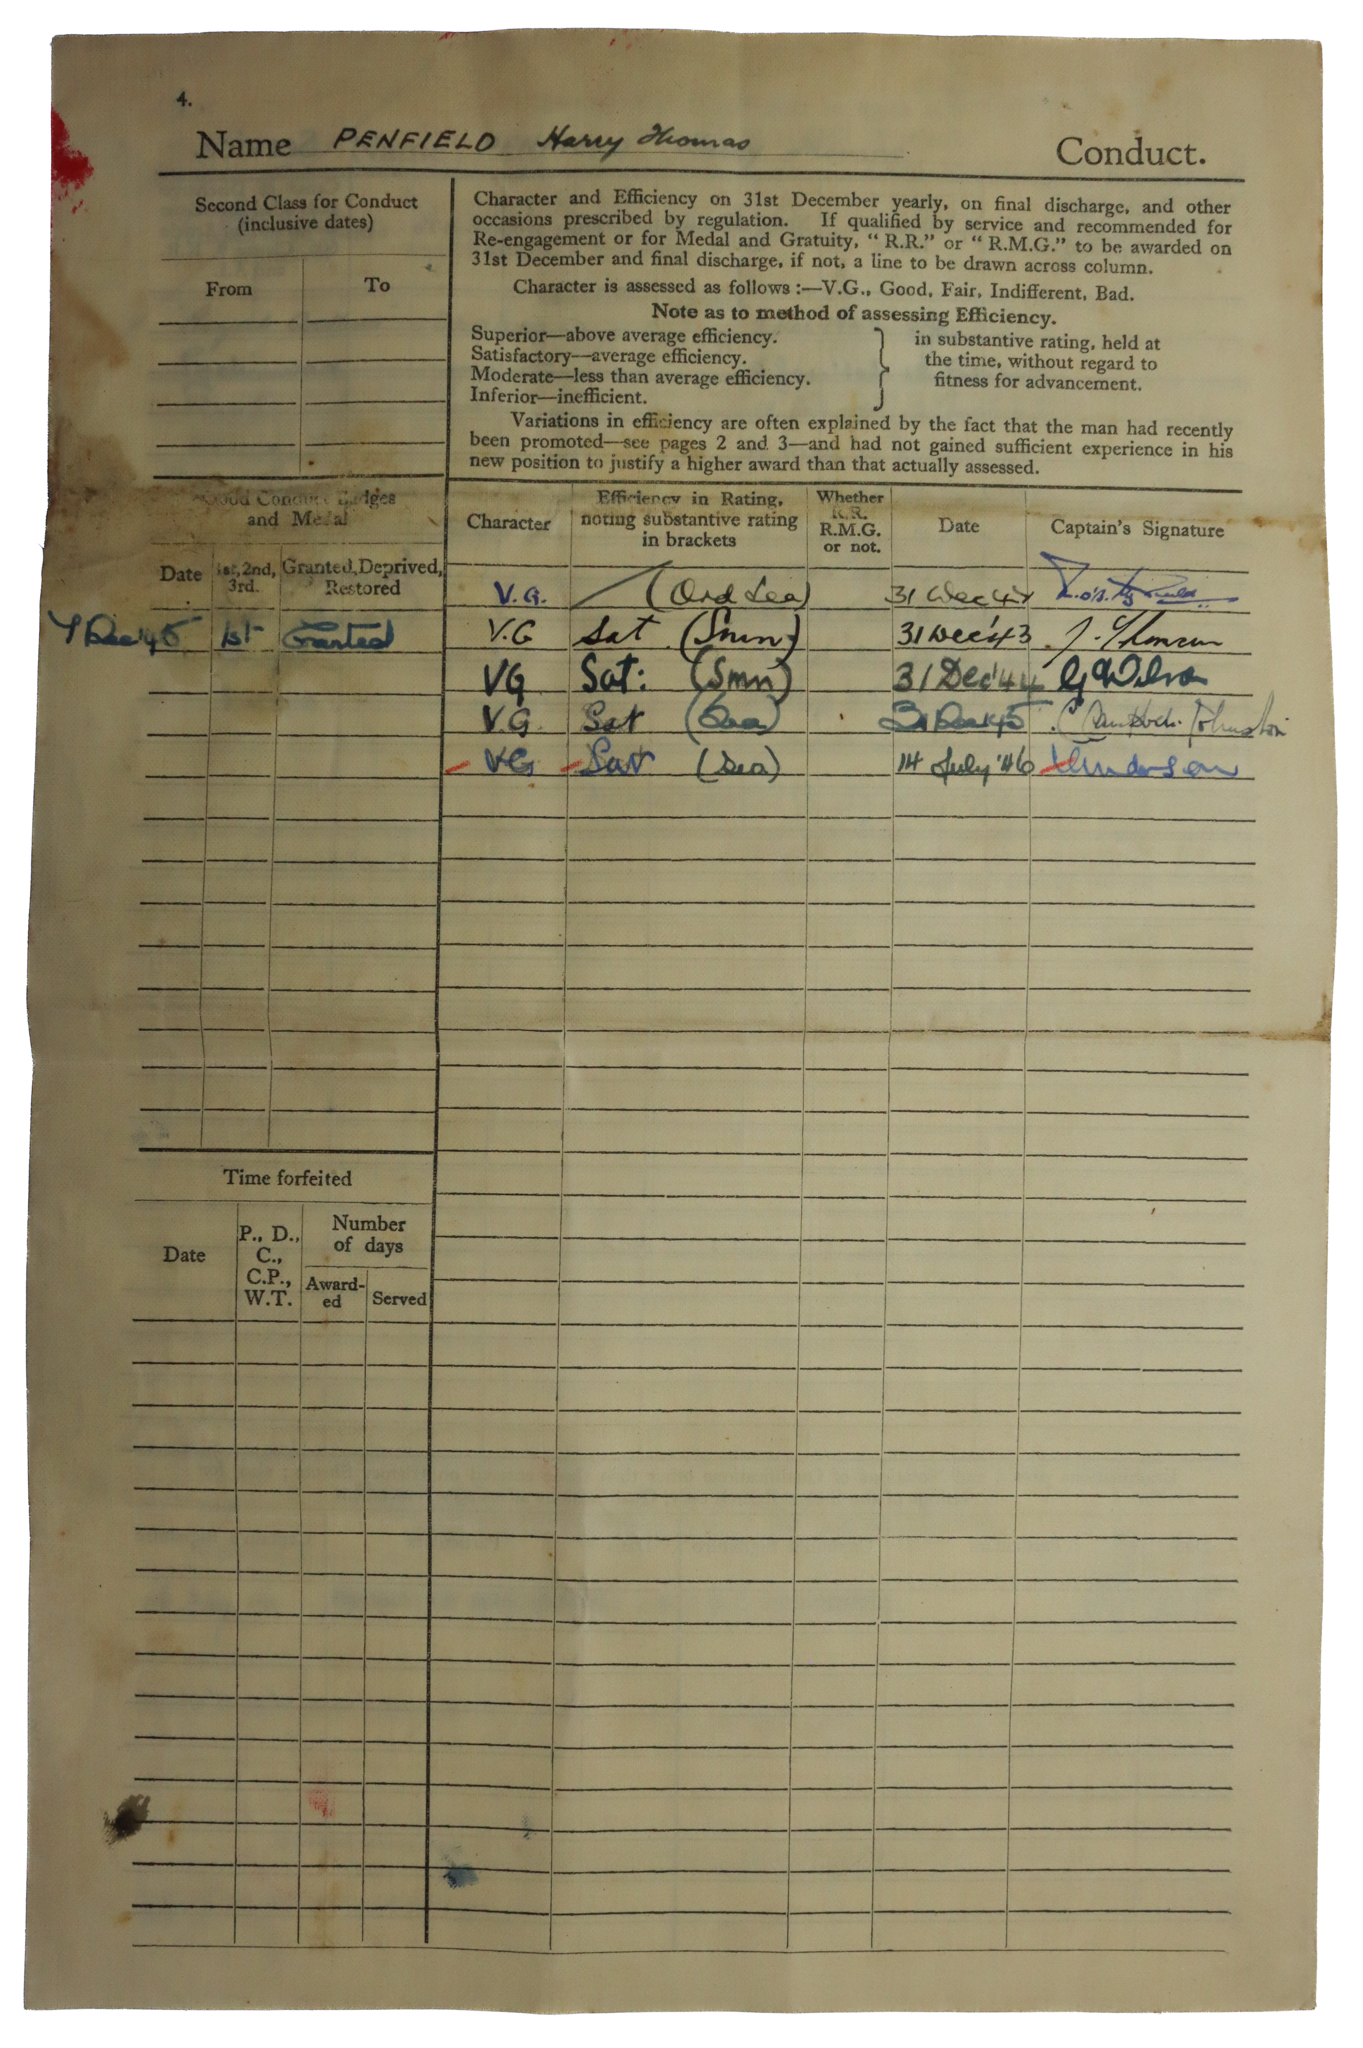 4.
Name PENFIELD Harry Thomas Conduct.
Second Class for Conduct
(inclusive dates)
From To
Character and Efficiency on 31st December yearly, on final discharge, and other
occasions prescribed by regulation. If qualified by service and recommended for
Re-engagement or for Medal and Gratuity, "R.R." or "R.M.G." to be awarded on
31st December and final discharge, if not, a line to be drawn across column.
Character is assessed as follows :—V.G., Good, Fair, Indifferent, Bad.
Note as to method of assessing Efficiency.
Superior—above average efficiency.
Satisfactory—average efficiency.
Moderate—less than average efficiency.
Inferior—inefficient.
in substantive rating, held at
the time, without regard to
fitness for advancement.
Variations in efficiency are often explained by the fact that the man had recently
been promoted—see pages 2 and 3—and had not gained sufficient experience in his
new position to justify a higher award than that actually assessed.
Good Conduct Badges
and Medal
Date 1st, 2nd, 3rd. Granted, Deprived, Restored
7 Dec 45 1st Granted
Character
Efficiency in Rating,
noting substantive rating
in brackets
Whether
R.R.
R.M.G.
or not.
Date
Captain's Signature
V.G. (Ord Sea) 31 Dec
V.G Sat (Smn) 31 Dec'43 J. Thomson
VG Sat: (Smn) 31 Dec'44 G Wilson
V.G Sat (Sea) 31 Dec 45 Johnston
VG Sat (Sea) 14 July '46 Anderson
Time forfeited
Date
P., D.,
C.,
C.P.,
W.T.
Number
of days
Award-
ed
Served